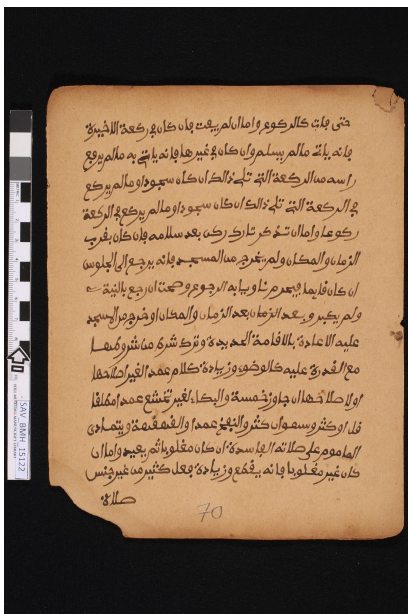 حتى فات كالركوع واما ان لم يفت فان كان في ركعة الاخيرة
فانه ياتي مالم يسلم وان كان في غيرها فانه ياتي به مالم يرفع
راسه من الركعة التي تلي ذالك ان كان سجودا ومالم يركع
في الركعة التي تلي ذالك ان كان سجودا ومالم يركع في الركعة
ركوعا واما ان تذكر تارك ركن بعد سلامه فان كان بقرب
الزمان والمكان ولم يخرج من المسجد فانه يرجع الى الجلوس
ان كان قايما فيحرم ناويا به الرجوع وصحت ان رجع بالنية
ولم يكبر وبعد الزمان بعد الزمان والمكان او خرج من المسجد
عليه الاعادة بالاقامة الجديدة وترك شرط من شروطها
مع القدرة عليه كالوضوء وزيادة كلام عمدا لغير اصلاحها
او لاصلاحها ان جاوز خمسة والبكاء لغير تخشع عمدا مطلقا
قل او كثر وسهوا ان كثر والنفخ عمدا والقهقهة ويتمادى
الماموم على صلاته الفاسدة ان كان مغلوبا ثم يعيد واما ان
كان غير مغلوبا فانه يقطع وزيادة فعل كثير من غير جنس
صلاة
70
SAV_BMH_15122